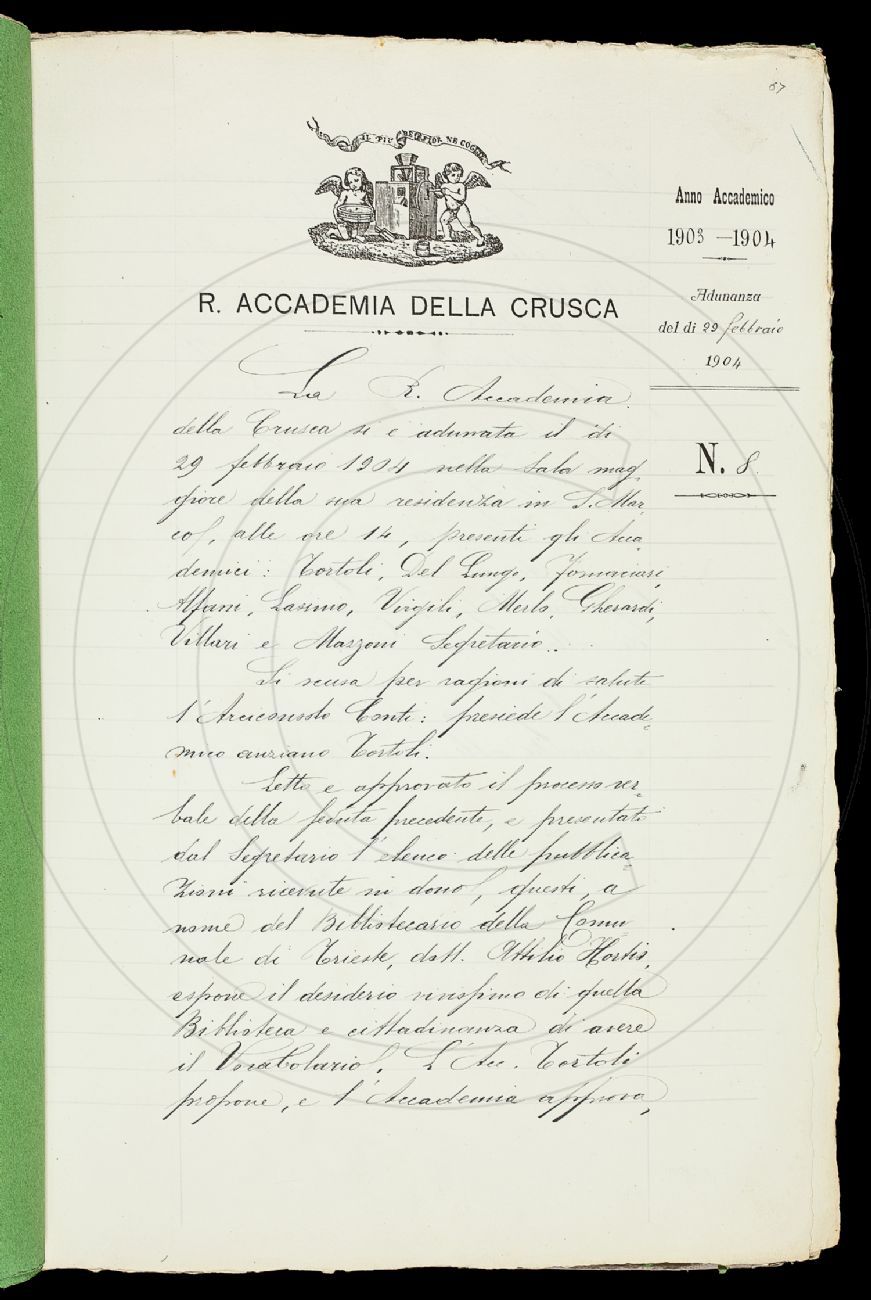 67
IL PIÙ BEL FIOR NE COGLIE
Anno Accademico
1903 — 1904
R. ACCADEMIA DELLA CRUSCA
Adunanza
del dì 29 febbraio
1904
N. 8.
La R. Accademia
della Crusca si è adunata il dì
29 febbraio 1904 nella Sala mag-
giore della sua residenza in S. Mar-
co, alle ore 14, presenti gli Acca-
demici: Tortoli, Del Lungo, Fornaciari,
Alfani, Lasinio, Virgili, Merlo, Gherardi,
Villari e Mazzoni Segretario.
Si scusa per ragioni di salute
l'Arciconsolo Conti: presiede l'Accade-
mico anziano Tortoli.
Letto e approvato il processo ver-
bale della seduta precedente, e presentato
dal Segretario l'elenco delle pubblica-
zioni ricevute in dono, questi, a
nome del Bibliotecario della Comu-
nale di Trieste, dott. Attilio Hortis,
espone il desiderio vivissimo di quella
Biblioteca e cittadinanza di avere
il Vocabolario. L'Acc. Tortoli
propone, e l'Accademia approva,